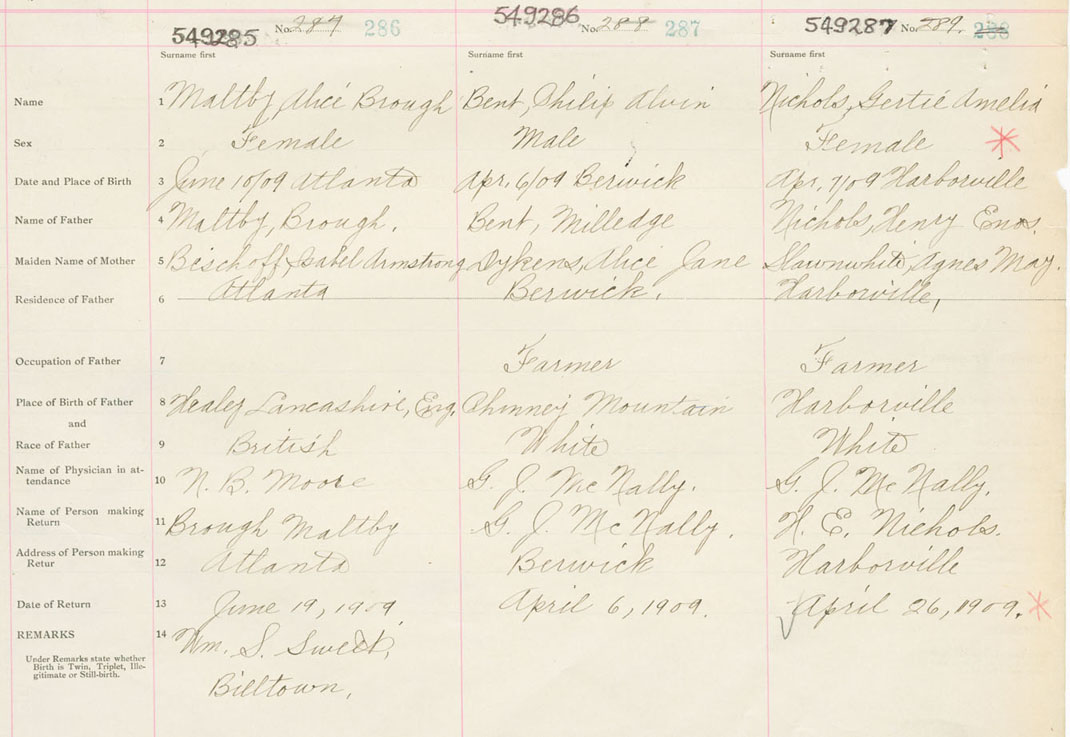 549285 No. 287 286 549286 No. 288 287 549287 No. 289. 288
Surname first Surname first Surname first
Name 1 Maltby, Alice Brough Bent, Philip Alvin Nichols, Gertie Amelia
Sex 2 Female Male Female
Date and Place of Birth 3 June 10/09 Atlanta Apr. 6/09 Berwick Apr. 7/09 Harborville
Name of Father 4 Maltby, Brough. Bent, Milledge Nichols, Henry Enos.
Maiden Name of Mother 5 Bischoff, Isabel Armstrong Dykens, Alice Jane Slawnwhite, Agnes May.
Residence of Father 6 Atlanta Berwick. Harborville,
Occupation of Father 7 Farmer Farmer
Place of Birth of Father 8 Healey Lancashire, Eng. Chinney Mountain Harborville
and
Race of Father 9 British White White
Name of Physician in at-
tendance 10 N. B. Moore G. J. McNally. G. J. McNally.
Name of Person making
Return 11 Brough Maltby G. J. McNally. H. E. Nichols.
Address of Person making
Retur 12 Atlanta Berwick Harborville
Date of Return 13 June 19, 1909 April 6, 1909. April 26, 1909.
REMARKS 14 Wm. S. Sweet,
Under Remarks state whether
Birth is Twin, Triplet, Ille-
gitimate or Still-birth.
Billtown,